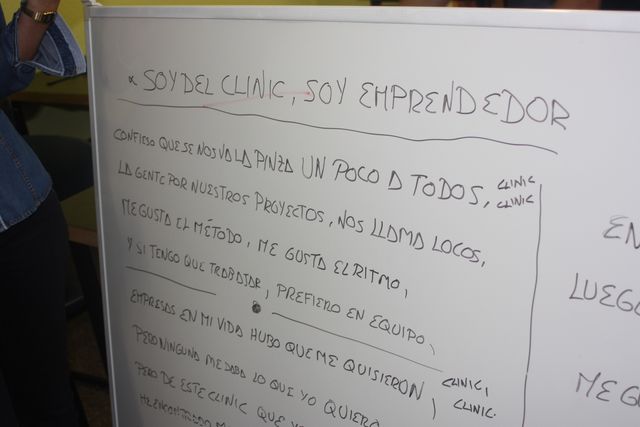 * SOY DEL CLINIC, SOY EMPRENDEDOR
CONFIESO QUE SE NOS VA LA PINZA UN POCO A TODOS, CLINIC CLINIC
LA GENTE POR NUESTROS PROYECTOS, NOS LLAMA LOCOS,
ME GUSTA EL MÉTODO, ME GUSTA EL RITMO,
Y SI TENGO QUE TRABAJAR, PREFIERO EN EQUIPO,
EMPRESAS EN MI VIDA HUBO QUE ME QUISIERON, CLINIC, CLINIC.
PERO NINGUNA ME DABA LO QUE YO QUIERO
PERO DE ESTE CLINIC QUE
EN
LUEGO
ME GU